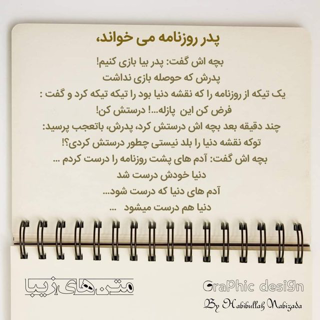 پدر روزنامه می خواند،
بچه اش گفت: پدر بیا بازی کنیم!
پدرش که حوصله بازی نداشت
یک تیکه از روزنامه را که نقشه دنیا بود را تیکه تیکه کرد و گفت :
فرض کن این پازله...! درستش کن!
چند دقیقه بعد بچه اش درستش کرد، پدرش، باتعجب پرسید:
توکه نقشه دنیا را بلد نیستی چطور درستش کردی؟!
بچه اش گفت: آدم های پشت روزنامه را درست کردم ...
دنیا خودش درست شد
آدم های دنیا که درست شود...
دنیا هم درست میشود ...
متن های زیبا
GraPhic desi9n
By Habibullah Nabizada